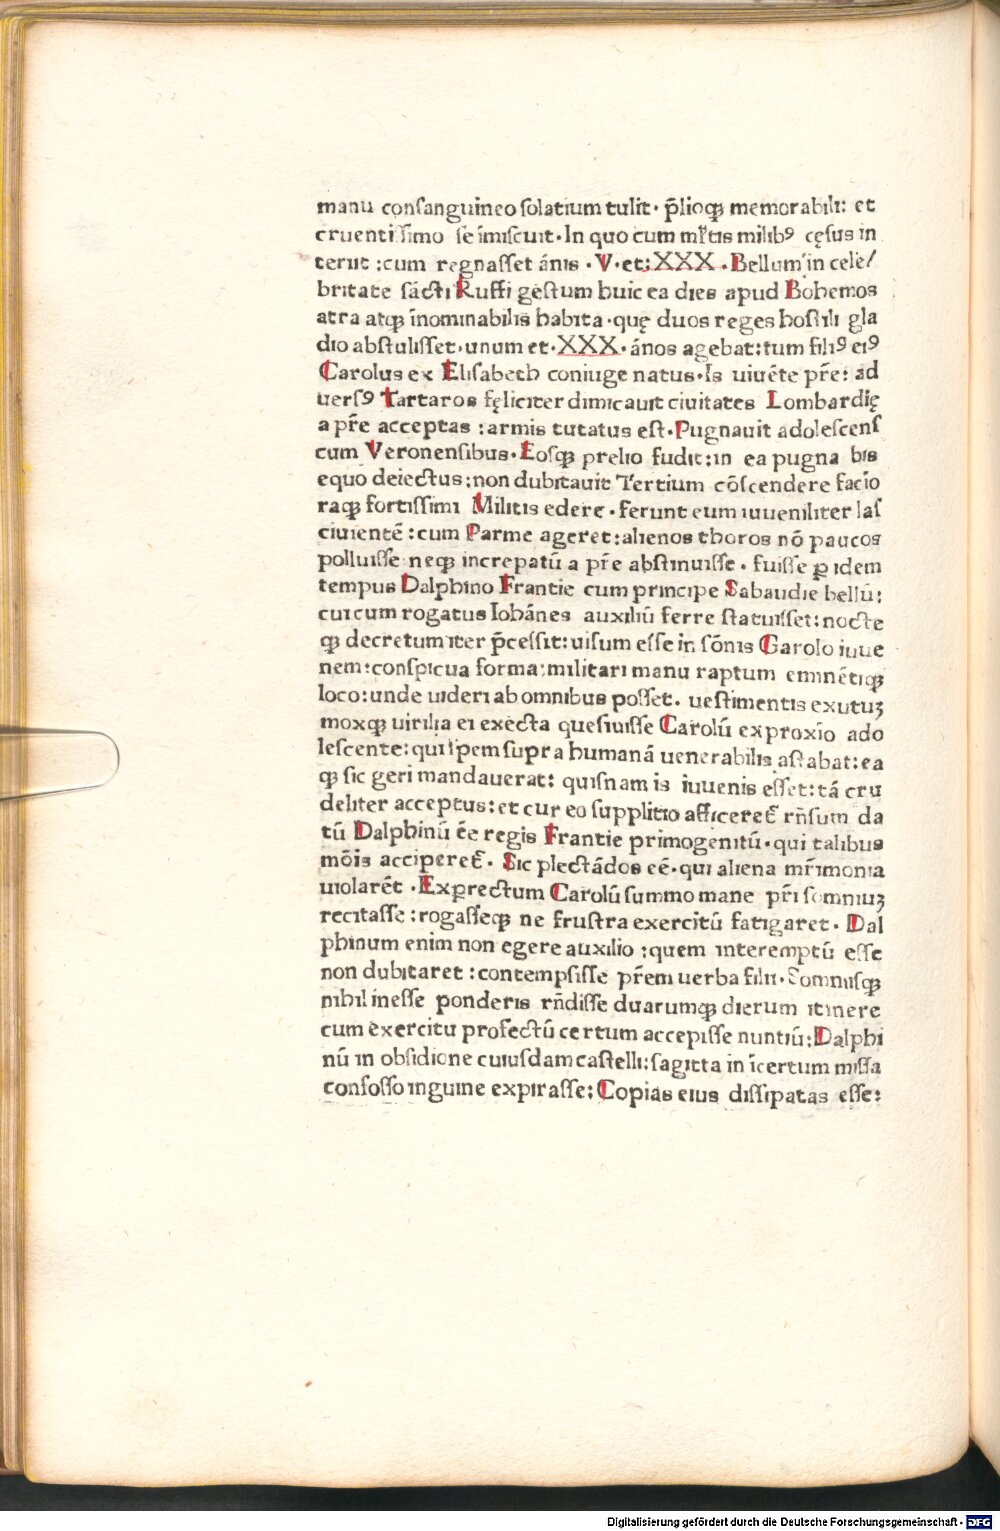 manu conſanguineo ſolatium tulit· p̄lioqꝫ memorabili: et
cruentiſſimo ſe īmiſcuit·In quo cum ml̄tis milibꝰ cęſus in
teriit :cum regnaſſet ānis ·V·et:XXX·Bellum in cele/
britate ſācti Ruffi geſtum huic ea dies apud Bohemos
atra atqꝫ īnominabilis habita·quę duos reges hoſtili gla
dio abſtuliſſet·unum et·XXX·ānos agebat:tum filiꝰ eiꝰ
Carolus ex Eliſabeth coniuge natus·Is uiuēte pr̄e: ad
uerſꝰ Tartaros fęliciter dimicauit ciuitates Lombardię
a pr̄e acceptas :armis tutatus eſt·Pugnauit adoleſcenſ
cum Veronenſibus·Eoſqꝫ prelio fudit:in ea pugna bis
equo deiectus:non dubitauit Tertium cōſcendere facīo
raqꝫ fortiſſimi Militis edere·ferunt eum iuueniliter laſ
ciuientē :cum Parme ageret:alienos thoros nō paucos
polluiſſe neqꝫ increpatū a pr̄e abſtinuiſſe·fuiſſe ꝑ idem
tempus Dalphino Frantie cum principe Sabaudie bellū:
cui cum rogatus Iohānes auxiliū ferre ſtatuiſſet:nocte
qꝫ decretum iter p̄ceſſit:uiſum eſſe in ſōnis Carolo iuue
nem:conſpicua forma:militari manu raptum eminētiqꝫ
loco:unde uideri ab omnibus poſſet. ueſtimentis exutuꝫ
moxqꝫ uirilia ei exēcta queſiuiſſe Carolū ex proxīo ado
leſcente:qui ſpem ſupra humanā uenerabilis aſtabat:ea
qꝫ ſic geri mandauerat: quiſnam is iuuenis eſſet:tā cru
deliter acceptus:et cur eo ſupplitio afficeret̄ rn̄ſum da
tū Dalphinū ēe regis Frantie primogenitū·qui talibus
mōis acciperet̄· Sic plectādos eē·qui aliena mr̄imonia
uiolarēt ·Exꝑrectum Carolū ſummo mane pr̄i ſomniuꝫ
recitaſſe :rogaſſeqꝫ ne fruſtra exercitū fatigaret·Dal
phinum enim non egere auxilio :quem interemptū eſſe
non dubitaret :contempſiſſe pr̄em uerba filii·Somniiſqꝫ
nihil ineſſe ponderis rn̄diſſe duarumqꝫ dierum itinere
cum exercitu profectū certum accepiſſe nuntiū:Dalphi
nū in obſidione cuiuſdam caſtelli:ſagitta in īcertum miſſa
confoſſo inguine expiraſſe:Copias eius diſſipatas eſſe:
Digitalisierung gefördert durch die Deutsche Forschungsgemeinschaft - DFG